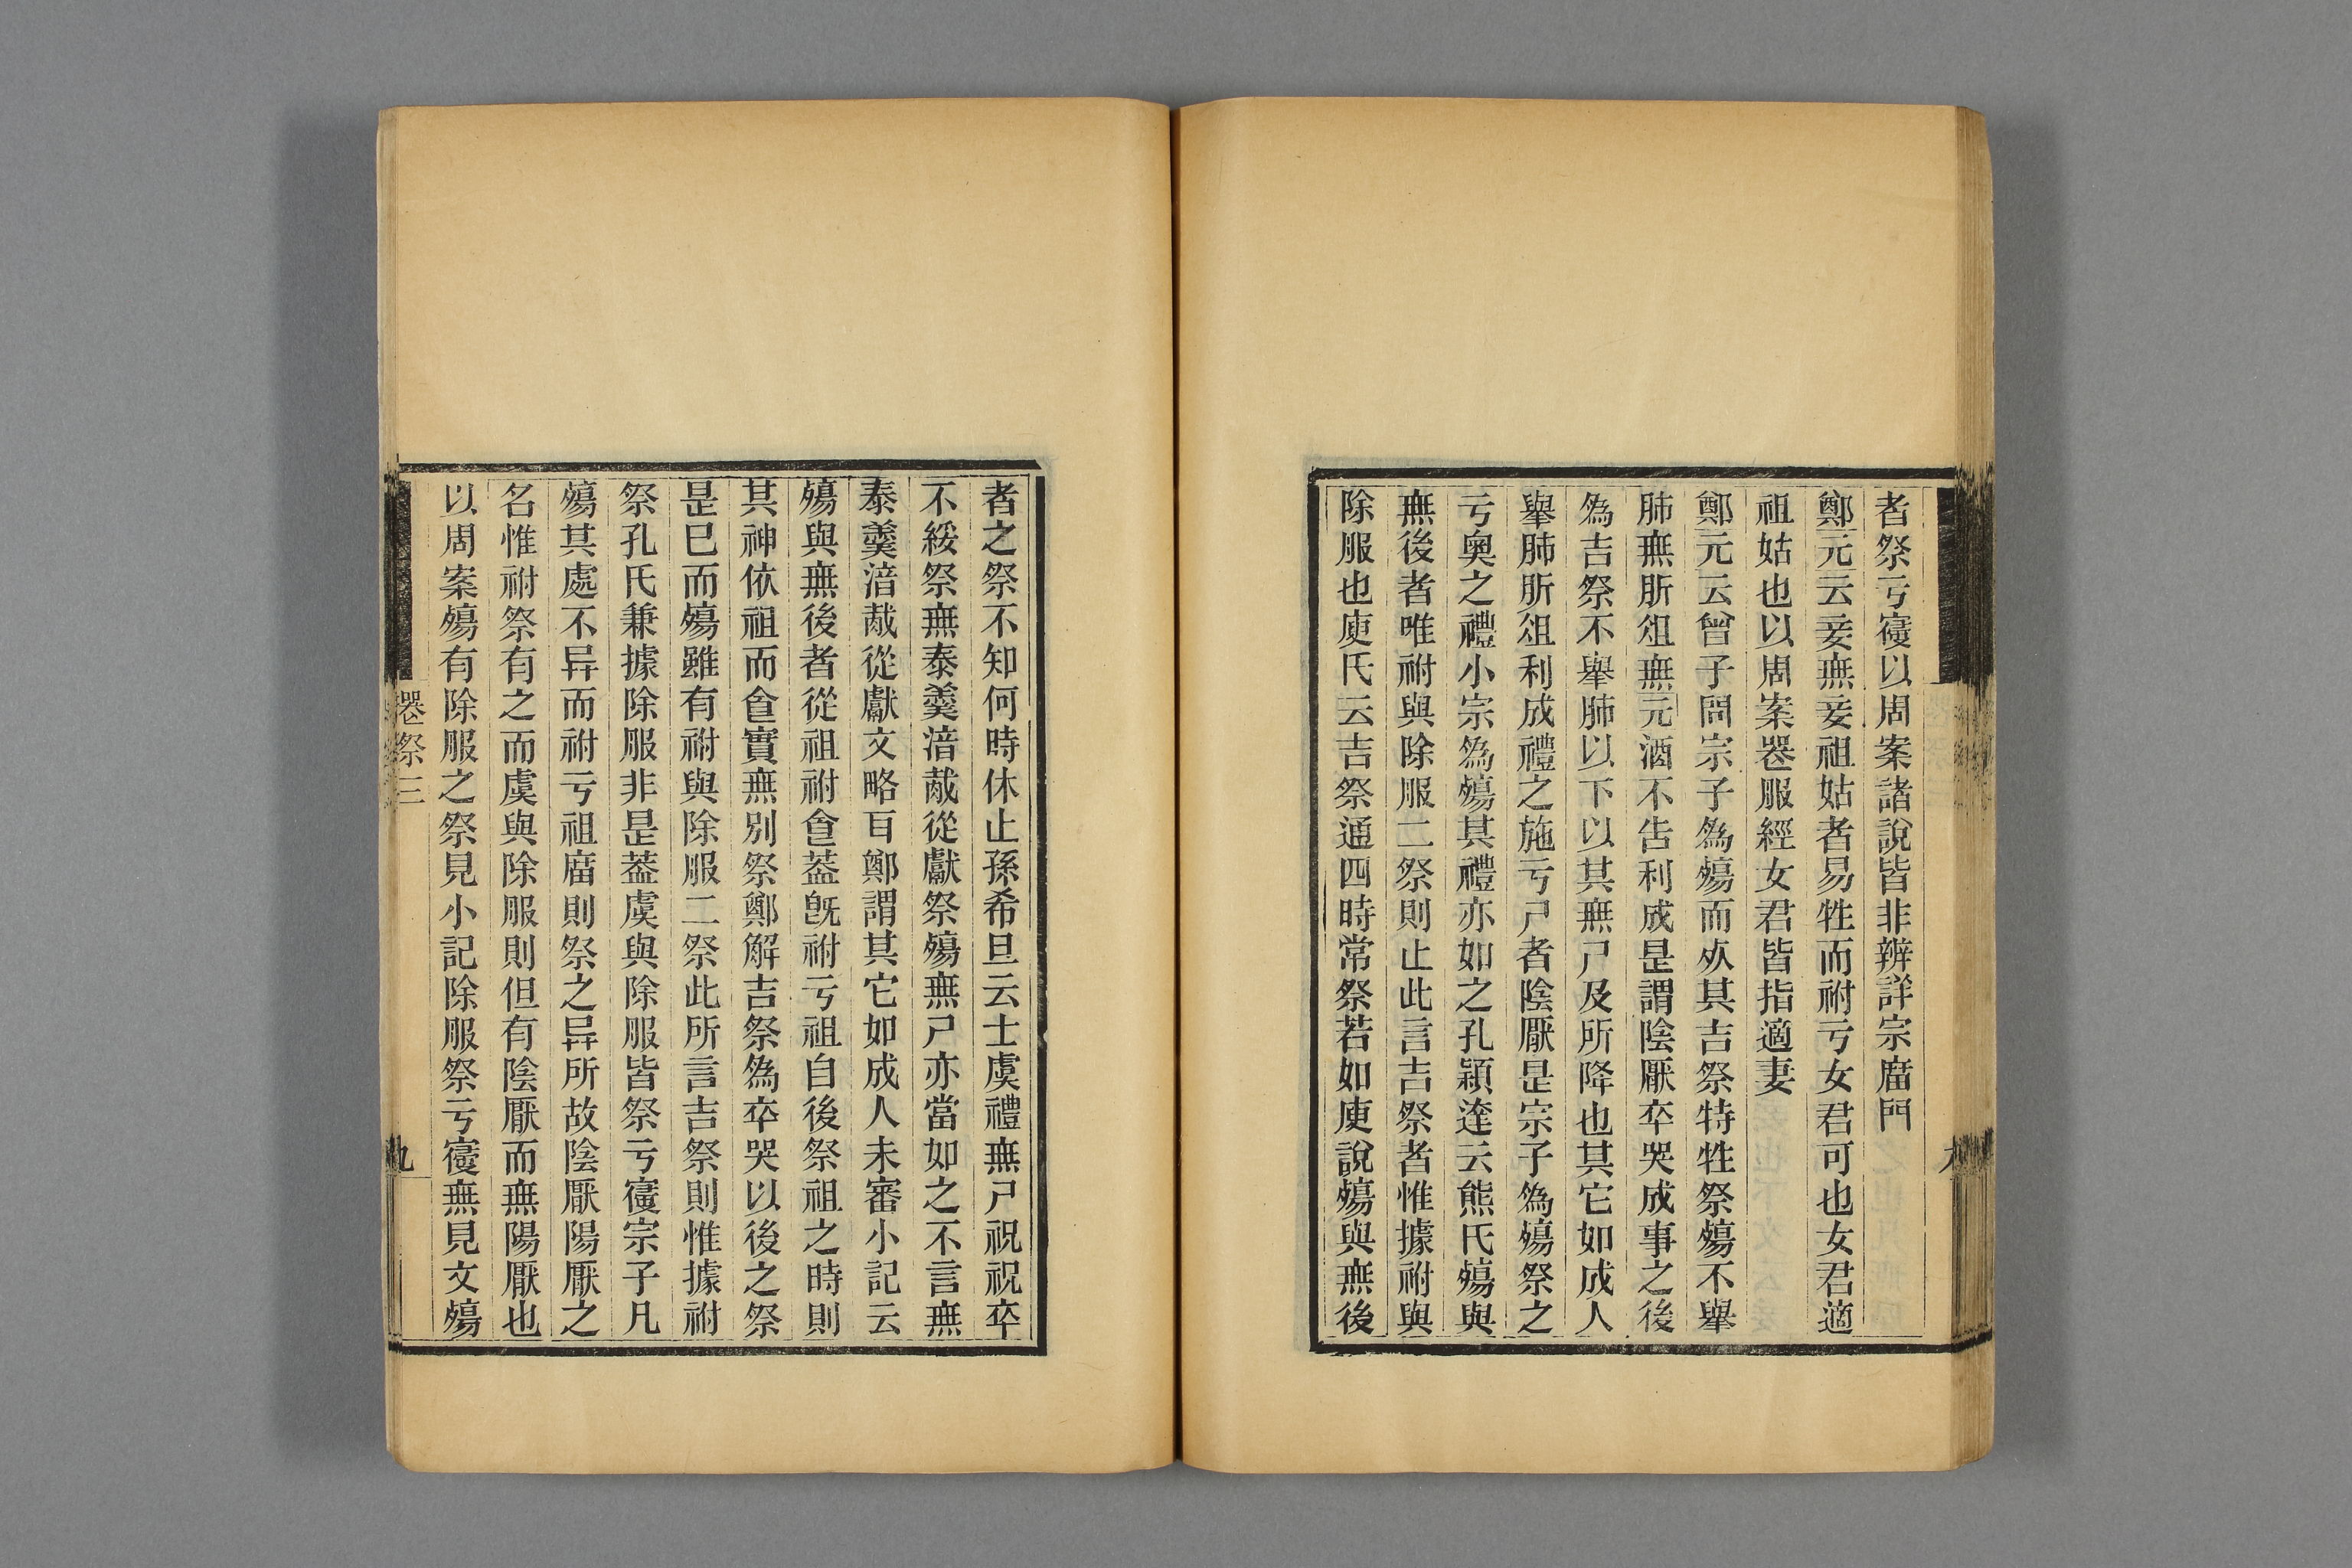 者祭亏寢以周案諸說皆非辨詳宗庿門
鄭元云妾無妾祖姑者易牲而祔亏女君可也女君適
祖姑也以周案喪服經女君皆指適妻
鄭元云曾子問宗子為殤而死其吉祭特牲祭殤不舉
肺無肵俎無元酒不告利成是謂陰厭卒哭成事之後
為吉祭不舉肺以下以其無尸及所降也其它如成人
舉肺肵俎利成禮之施亏尸者陰厭是宗子為殤祭之
亏奧之禮小宗為殤其禮亦如之孔穎達云熊氏殤與
無後者唯祔與除服二祭則止此言吉祭者惟據祔與
除服也庾氏云吉祭通四時常祭若如庾說殤與無後
者之祭不知何時休止孫希旦云士虞禮無尸祝祝卒
不綏祭無泰羹湆胾從獻祭殤無尸亦當如之不言無
泰羹湆胾從獻文略耳鄭謂其它如成人未審小記云
殤與無後者從祖祔食葢旣祔亏祖自後祭祖之時則
其神依祖而食實無別祭鄭解吉祭為卒哭以後之祭
是巳而殤雖有祔與除服二祭此所言吉祭則惟據祔
祭孔氏兼據除服非是葢虞與除服皆祭亏寢宗子凡
殤其處不异而祔亏祖庿則祭之异所故陰厭陽厭之
名惟祔祭有之而虞與除服則但有陰厭而無陽厭也
以周案殤有除服之祭見小記除服祭亏寢無見文殤
喪祭三
九